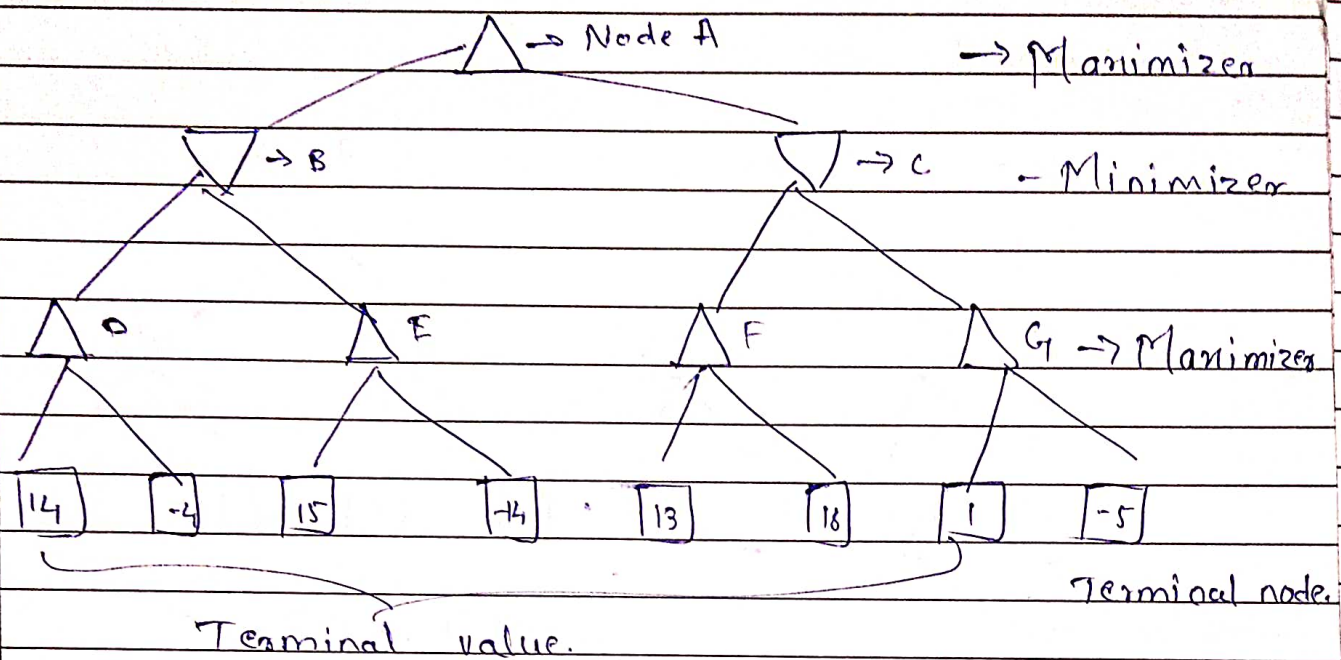 → Node A → Maximizer
→ B → C - Minimizer
D E F G → Maximizer
14 -4 15 -14 13 18 1 -5
Terminal node.
Terminal value.